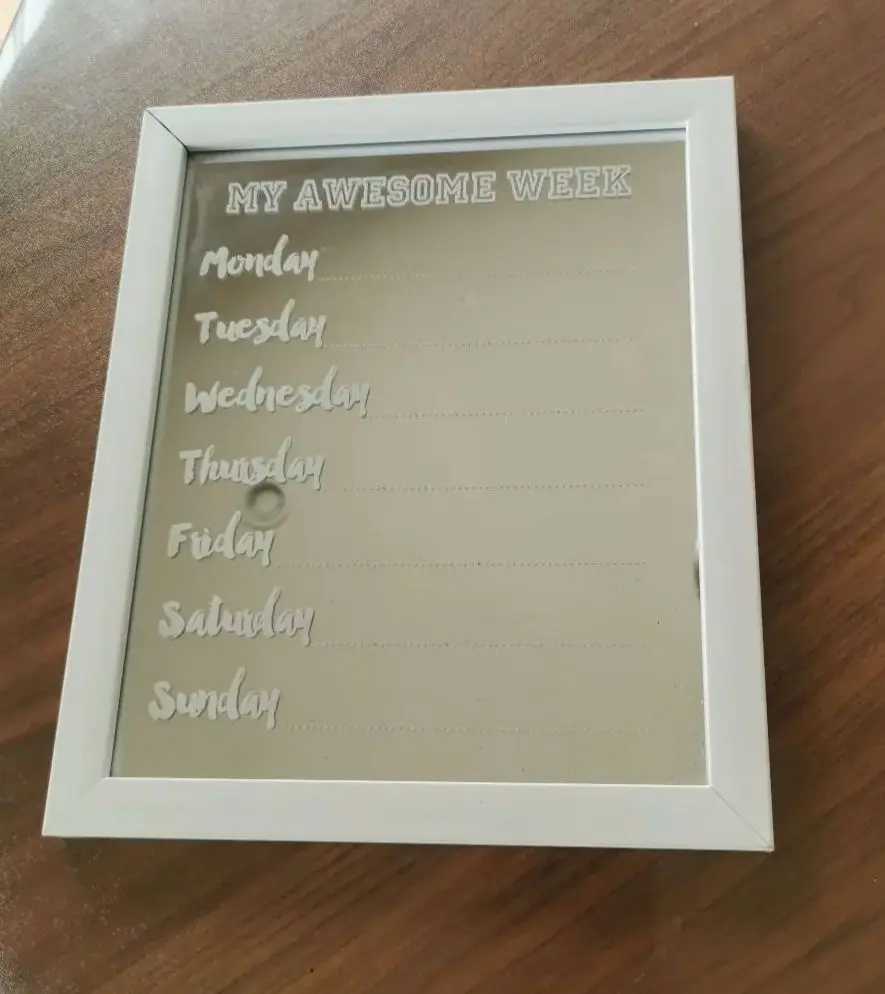 MY AWESOME WEEK
Monday
Tuesday
Wednesday
Thursday
Friday
Saturday
Sunday